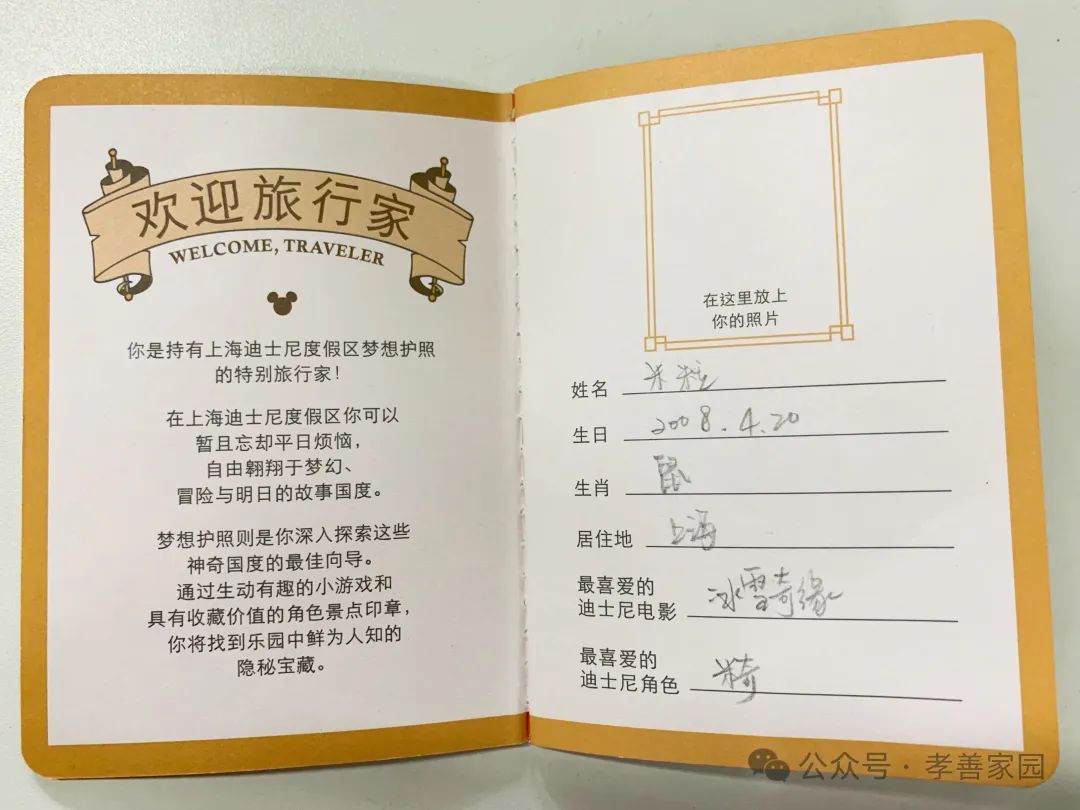 欢迎旅行家
WELCOME, TRAVELER
你是持有上海迪士尼度假区梦想护照
的特别旅行家！
在上海迪士尼度假区你可以
暂且忘却平日烦恼，
自由翱翔于梦幻、
冒险与明日的故事国度。
梦想护照则是你深入探索这些
神奇国度的最佳向导。
通过生动有趣的小游戏和
具有收藏价值的角色景点印章，
你将找到乐园中鲜为人知的
隐秘宝藏。
在这里放上
你的照片
姓名 米粒
生日 2008.4.20
生肖 鼠
居住地 上海
最喜爱的
迪士尼电影 冰雪奇缘
最喜爱的
迪士尼角色 米奇
公众号·孝善家园